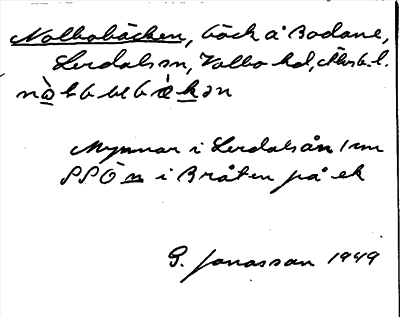 Nolbobäcken, bäck å Bodane,
Lerdals sn, Valbo hd, Älvsb. l.
Mynnar i Lerdalsån 1 cm
SSÖ n i Bråten på ek
G. Jonasson 1949